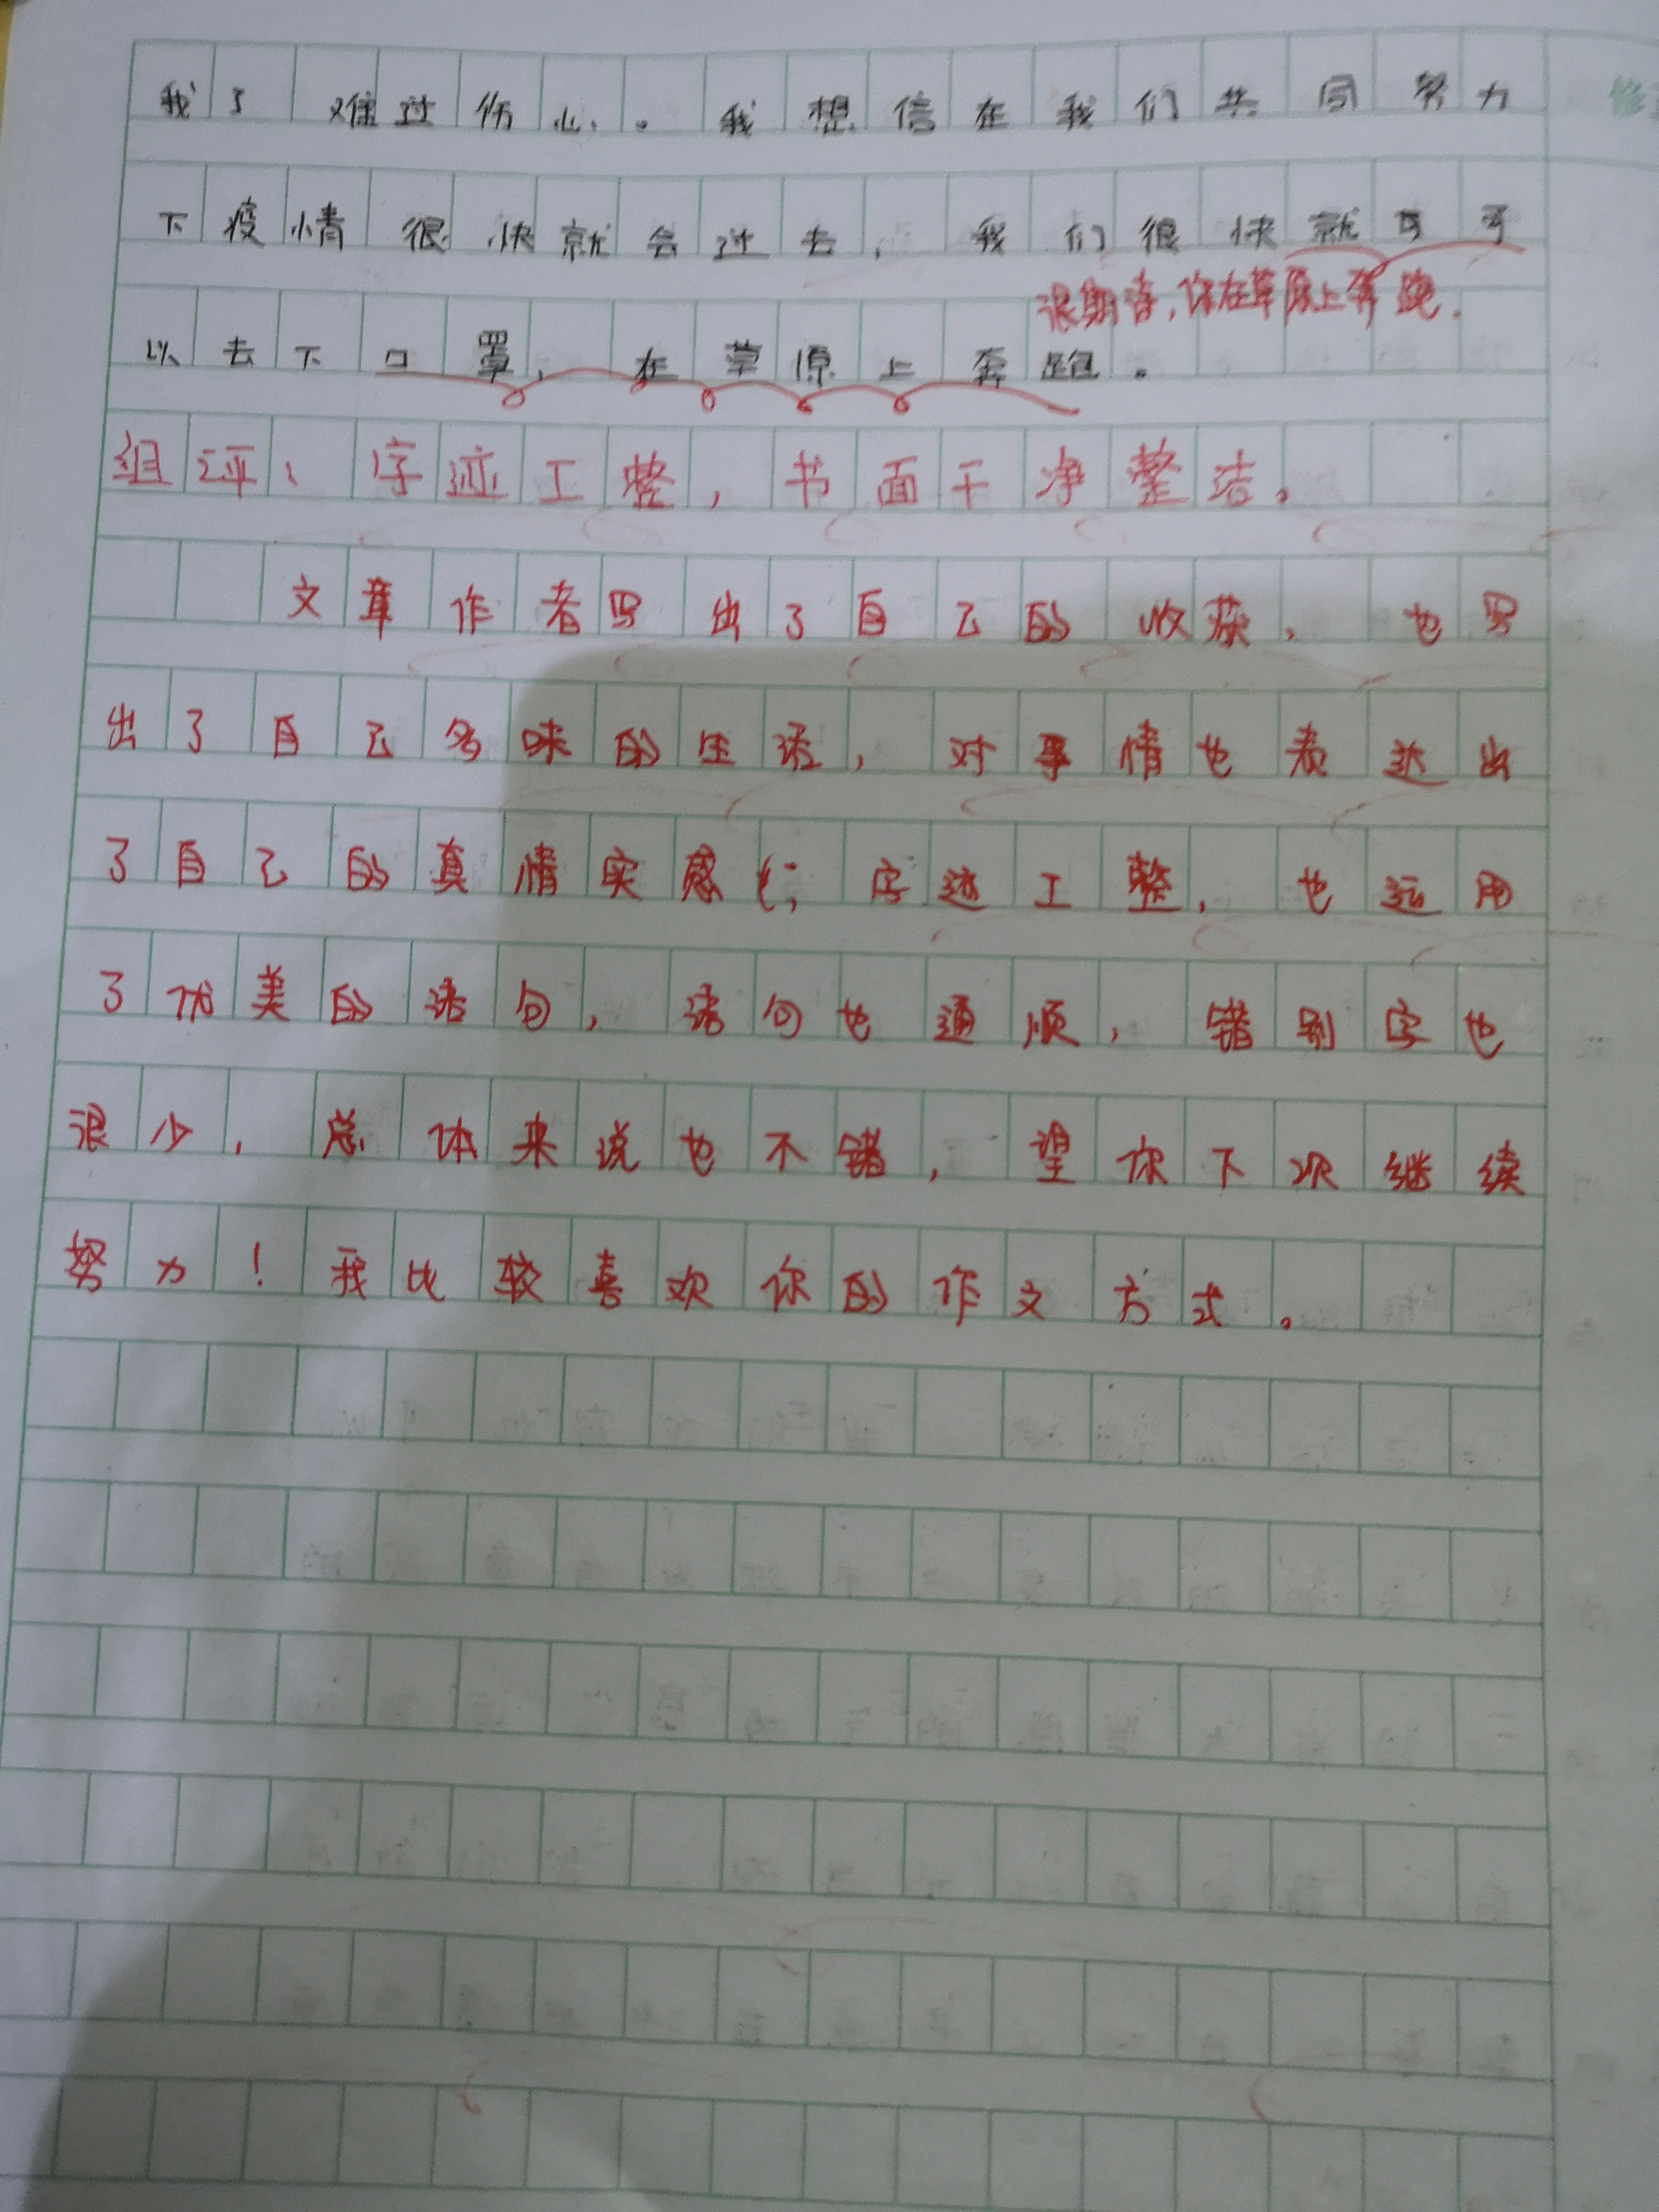 我了难过伤心。我想信在我们共同努力
下疫情很快就会过去，我们很快就可
很期待，你在草原上奔跑.
以去下口罩，在草原上奔跑。
组评、字迹工整，书面干净整洁。
文章作者写出了自己的收获，也写
出了自己多味的生活，对事情也表达出
了自己的真情实感；字迹工整，也运用
了优美的语句，语句也通顺，错别字也
很少，总体来说也不错，望你下次继续
努力！我比较喜欢你的作文方式。